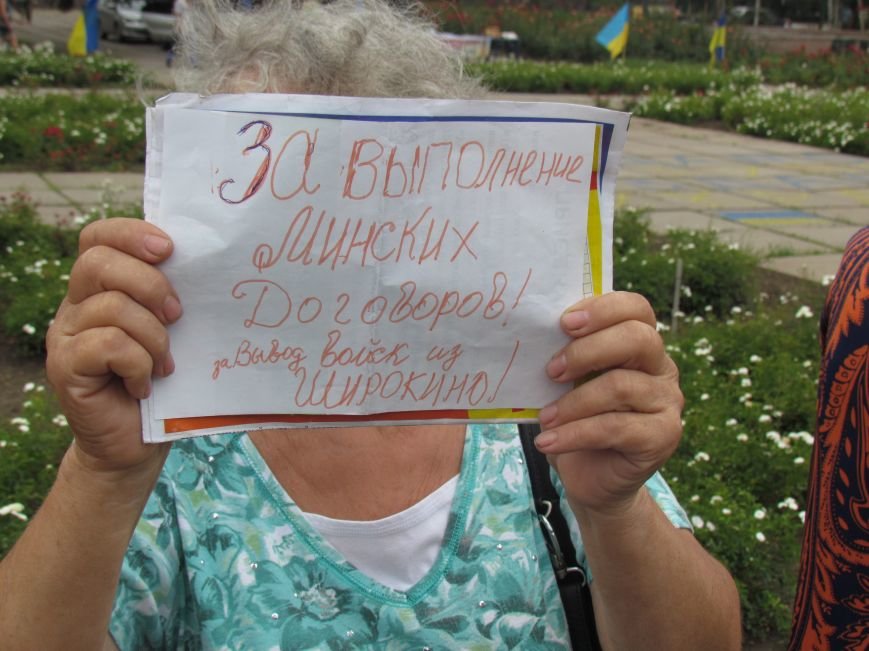 За выполнение
Минских
Договоров!
за Вывод войск из
Широкино!